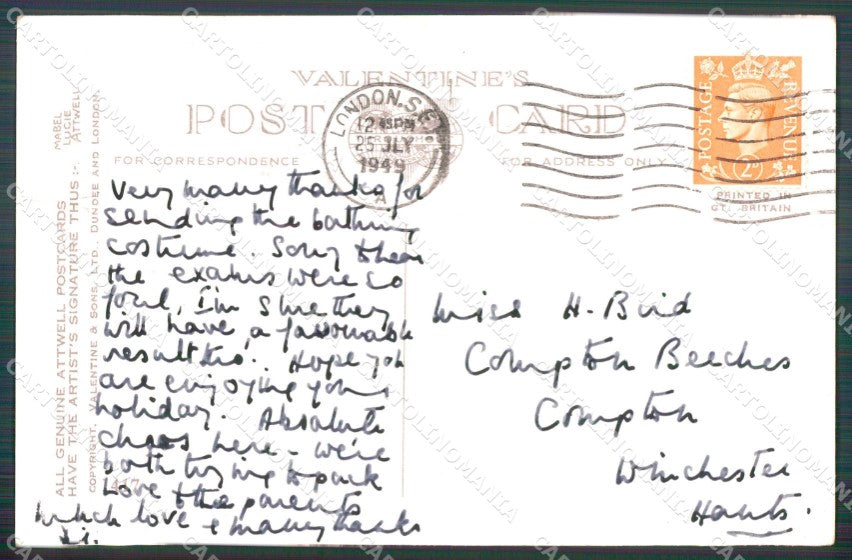 VALENTINE'S
POSTCARD
FOR CORRESPONDENCE
FOR ADDRESS ONLY
LONDON. S.E.
12 45 PM
25 JLY
1949
A
POSTAGE REVENUE
2D
PRINTED IN
GT. BRITAIN
MABEL
LUCIE
ATTWELL
ALL GENUINE ATTWELL POSTCARDS
HAVE THE ARTIST'S SIGNATURE THUS :-
COPYRIGHT, VALENTINE & SONS, LTD., DUNDEE AND LONDON.
417
Very many thanks for
sending the bathing
costume. Sorry to hear
the exams were so
foul, I'm sure they
will have a favourable
result tho'. Hope you
are enjoying your
holiday. Absolute
chaos here - we're
both trying to pack
Love to the parents
Much love & many thanks
Di.
Miss H. Bird
Compton Beeches
Compton
Winchester
Hants.
CARTOLINOMANIA